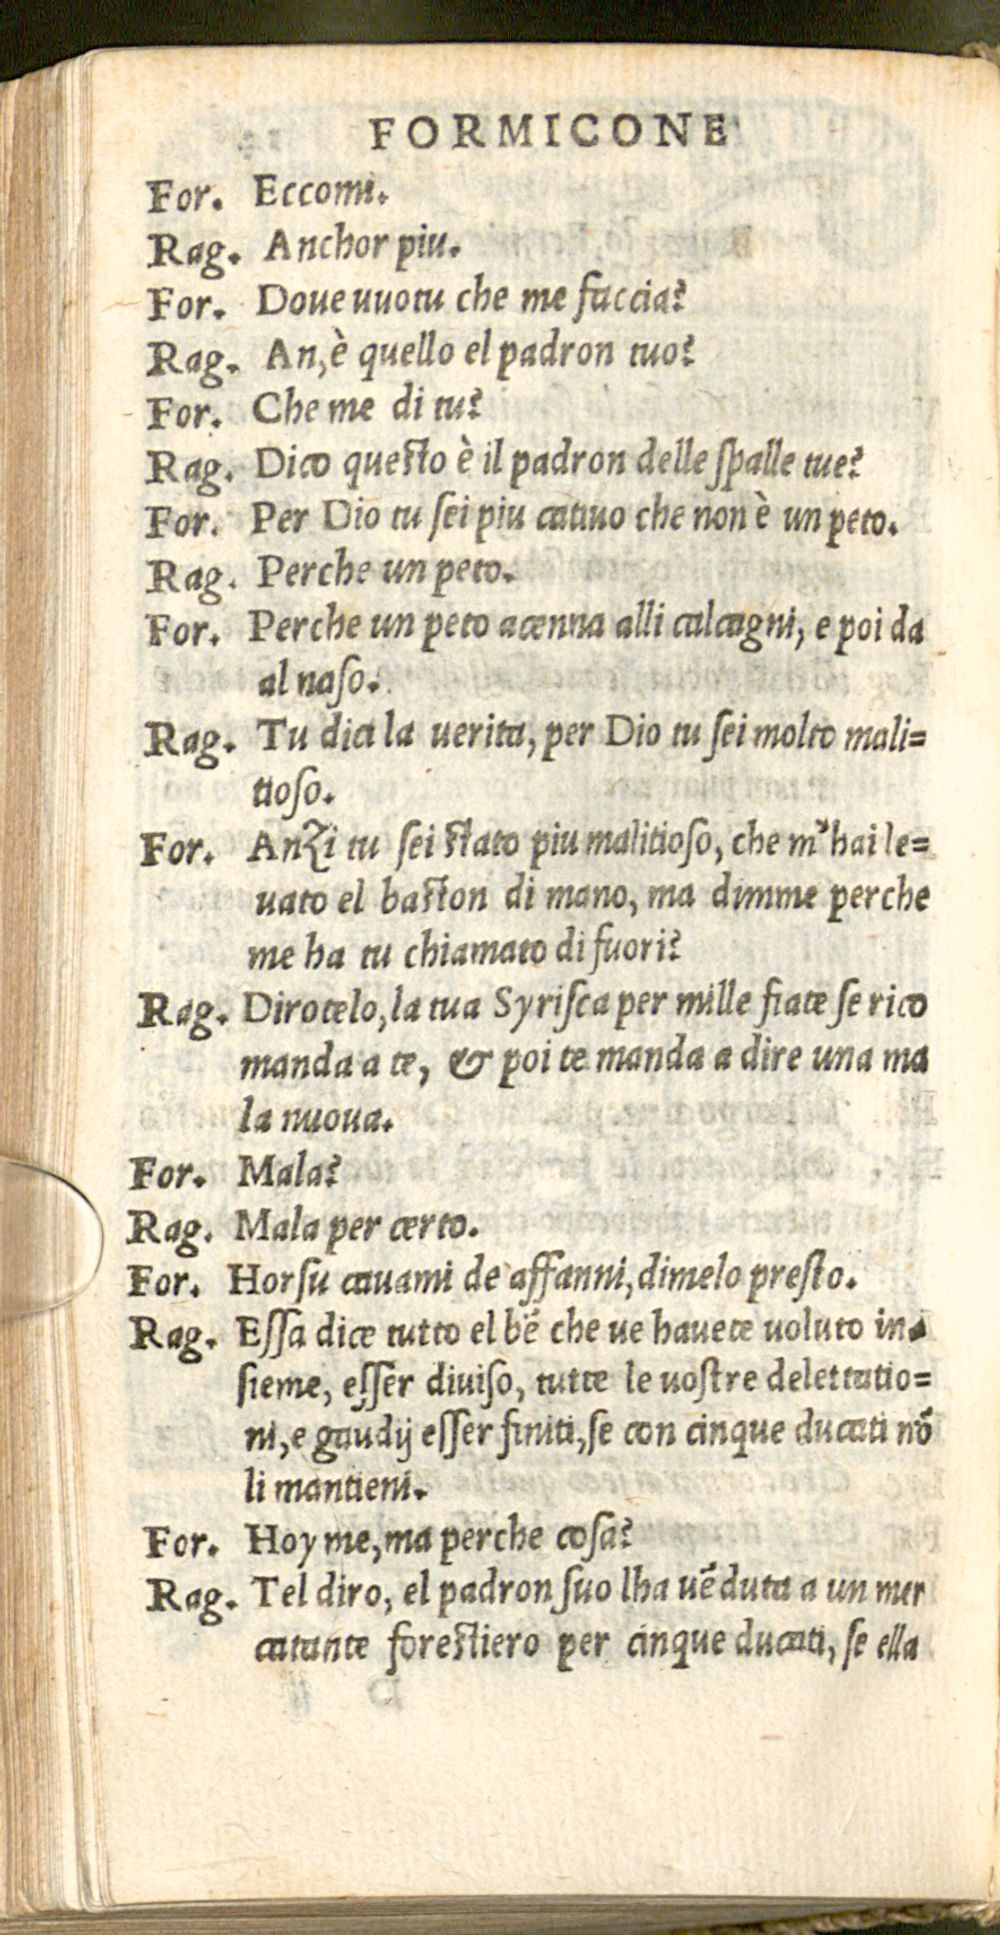 FORMICONE
For. Eccomi.
Rag. Anchor piu.
For. Doue uuotu che me faccia?
Rag. An, è quello el padron tuo?
For. Che me di tu?
Rag. Dico questo è il padron delle spalle tue?
For. Per Dio tu sei piu catiuo che non è un peto.
Rag. Perche un peto.
For. Perche un peto acenna alli calcagni, e poi da
al naso.
Rag. Tu dici la uerita, per Dio tu sei molto mali=
tioso.
For. Anzi tu sei stato piu malitioso, che m'hai le=
uato el baston di mano, ma dimme perche
me ha tu chiamato di fuori?
Rag. Dirotelo, la tua Syrisca per mille fiate se rico
manda a te, & poi te manda a dire una ma
la nuoua.
For. Mala?
Rag. Mala per certo.
For. Horsu cauami de affanni, dimelo presto.
Rag. Essa dice tutto el bē che ue hauete uoluto in=
sieme, esser diuiso, tutte le uostre delettatio=
ni, e gaudij esser finiti, se con cinque ducati nō
li mantieni.
For. Hoyme, ma perche cosa?
Rag. Tel diro, el padron suo lha uēduta a un mer
catante forestiero per cinque ducati, se ella